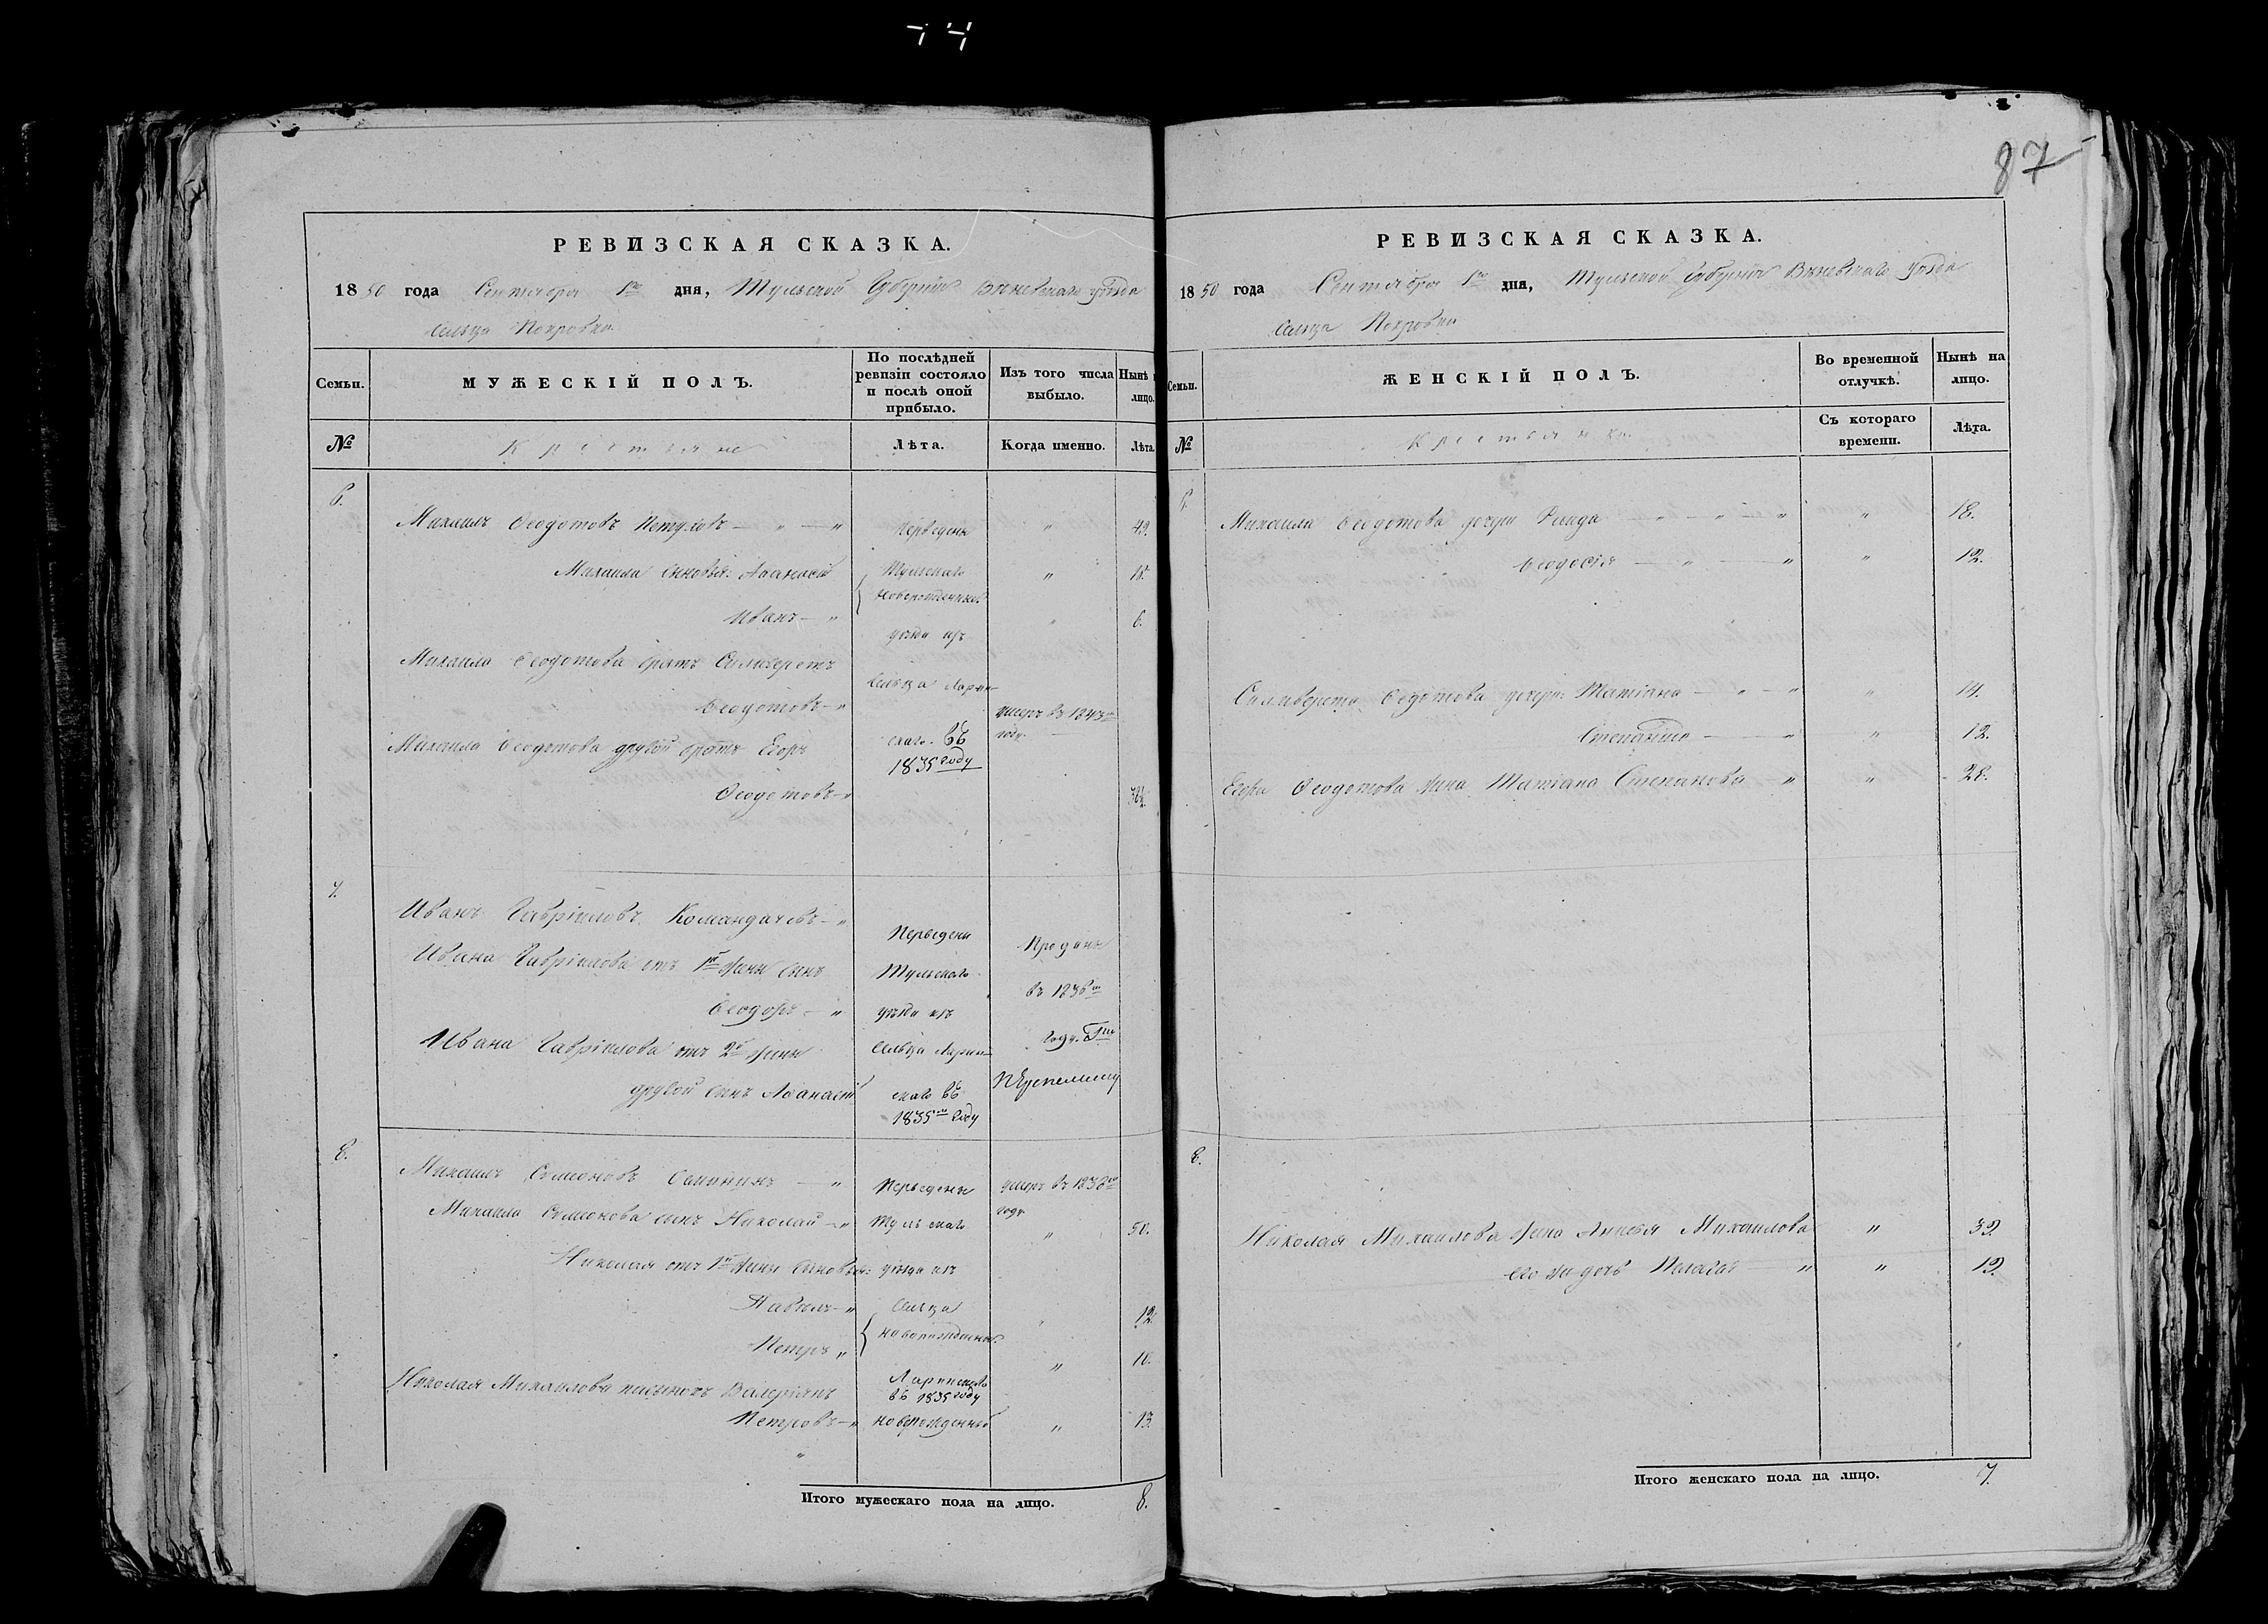 87
РЕВИЗСКАЯ СКАЗКА.
1850 года Сентября 1го дня, Тульской Губерніи Веневскаго уѣзда
Сельца Покровки
Семьи.
МУЖЕСКІЙ ПОЛЪ.
По послѣдней ревизіи состояло и послѣ оной прибыло.
Изъ того числа выбыло.
Нынѣ на лицо.
№
Крестьяне
Лѣта.
Когда именно.
Лѣта.
6.
Михаилъ Ѳеодотовъ Петуховъ — " — " Переведены " 49.
Михаила сыновья: Аѳанасій Тульскаго " 15.
новорожденные
Иванъ — " уѣзда изъ " 6.
Михаила Ѳеодотова братъ Селиверстъ
сельца Ларин-
Ѳеодотовъ — " умеръ въ 1843м
году
Михаила Ѳеодотова другой братъ Егоръ скаго въ
1835 году
Ѳеодотовъ — "
7.
Иванъ Гавріиловъ Командачевъ — " Переведены Проданы
Ивана Гавріилова отъ 1й жены сынъ Тульскаго въ 1836м
Ѳеодоръ — " уѣзда изъ году
Ивана Гавріилова отъ 2й жены сельца Ларин-
другой сынъ Аѳанасій скаго въ
1835м году
8.
Михаилъ Семеновъ — " Переведены умеръ въ 1838м
году
Михаила Семенова сынъ Николай — " Тульскаго " 50.
Николая отъ 1й жены сыновья: уѣзда изъ
Павелъ — " сельца " 12.
новорожденные
Петръ " " 10.
Николая Михаилова пасынокъ Валеріянъ Ларинскаго
въ 1835 году
Петровъ — " новорожденный " 13.
Итого мужескаго пола на лицо. 8.
РЕВИЗСКАЯ СКАЗКА.
1850 года Сентября 1го дня, Тульской Губерніи Веневскаго уѣзда
Сельца Покровки
Семьи.
ЖЕНСКІЙ ПОЛЪ.
Во временной отлучкѣ.
Нынѣ на лицо.
№
Крестьянки
Съ котораго времени.
Лѣта.
6.
Михаила Ѳеодотова дочери — " — " — " " 18.
Ѳеодосія — " — " " 12.
Селиверста Ѳедотова дочери: Татіана — " — " " 14.
Степанида — " " 12.
Егора Ѳеодотова жена Татіана Степанова — " " 28.
8.
Николая Михаилова жена Анисья Михаилова " 39.
его же дочь Пелагея — " " 19.
Итого женскаго пола на лицо. 7.